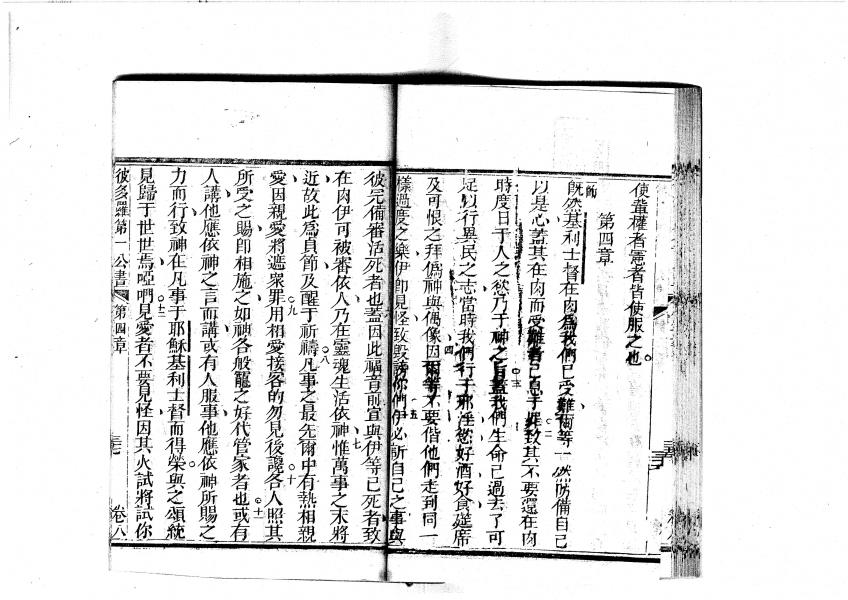 使輩權者憲者皆使服之也
第四章
既然基利士督在肉爲我們已受難爾等一然防備自己
以是心蓋其在肉而受難者已息乎罪致其不要還在肉
時度日于人之慾乃于神之旨蓋我們生命已過去了可
足以行異民之志當時我們行于邪淫慾好酒好食筵席
及可恨之拜僞神與偶像因爾等不要偕他們走到同一
樣過度之樂伊即見怪致毀謗你們伊必訴自己之事與
彼完備審活死者也蓋因此福音前宣與伊等已死者致
在肉伊可被審依人乃在靈魂生活依神惟萬事之末將
近故此爲貞節及醒于祈禱凡事之最先爾中有熱相親
愛因親愛將遮衆罪用相愛接客的勿見後讒各人照其
所受之賜即相施之如神各般寵之好代管家者也或有
人講他應依神之言而講或有人服事他應依神所賜之
力而行致神在凡事于耶穌基利士督而得榮與之頌統
見歸于世世焉啞㘄見愛者不要見怪因其火試將試你
彼多羅第一公書
第四章
三
卷八